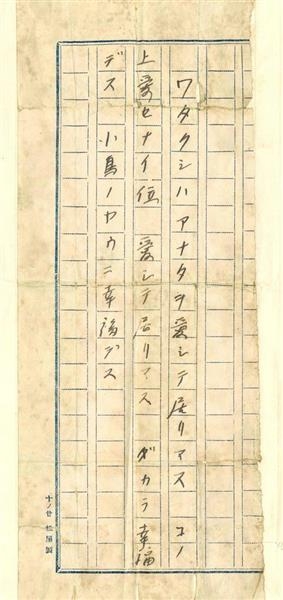 ワタクシハアナタヲ愛シテ居リマス コノ
上愛セナイ位 愛シテ居リマス ダカラ幸福
デス 小鳥ノヤウニ幸福デス
十ノ廿 松屋製